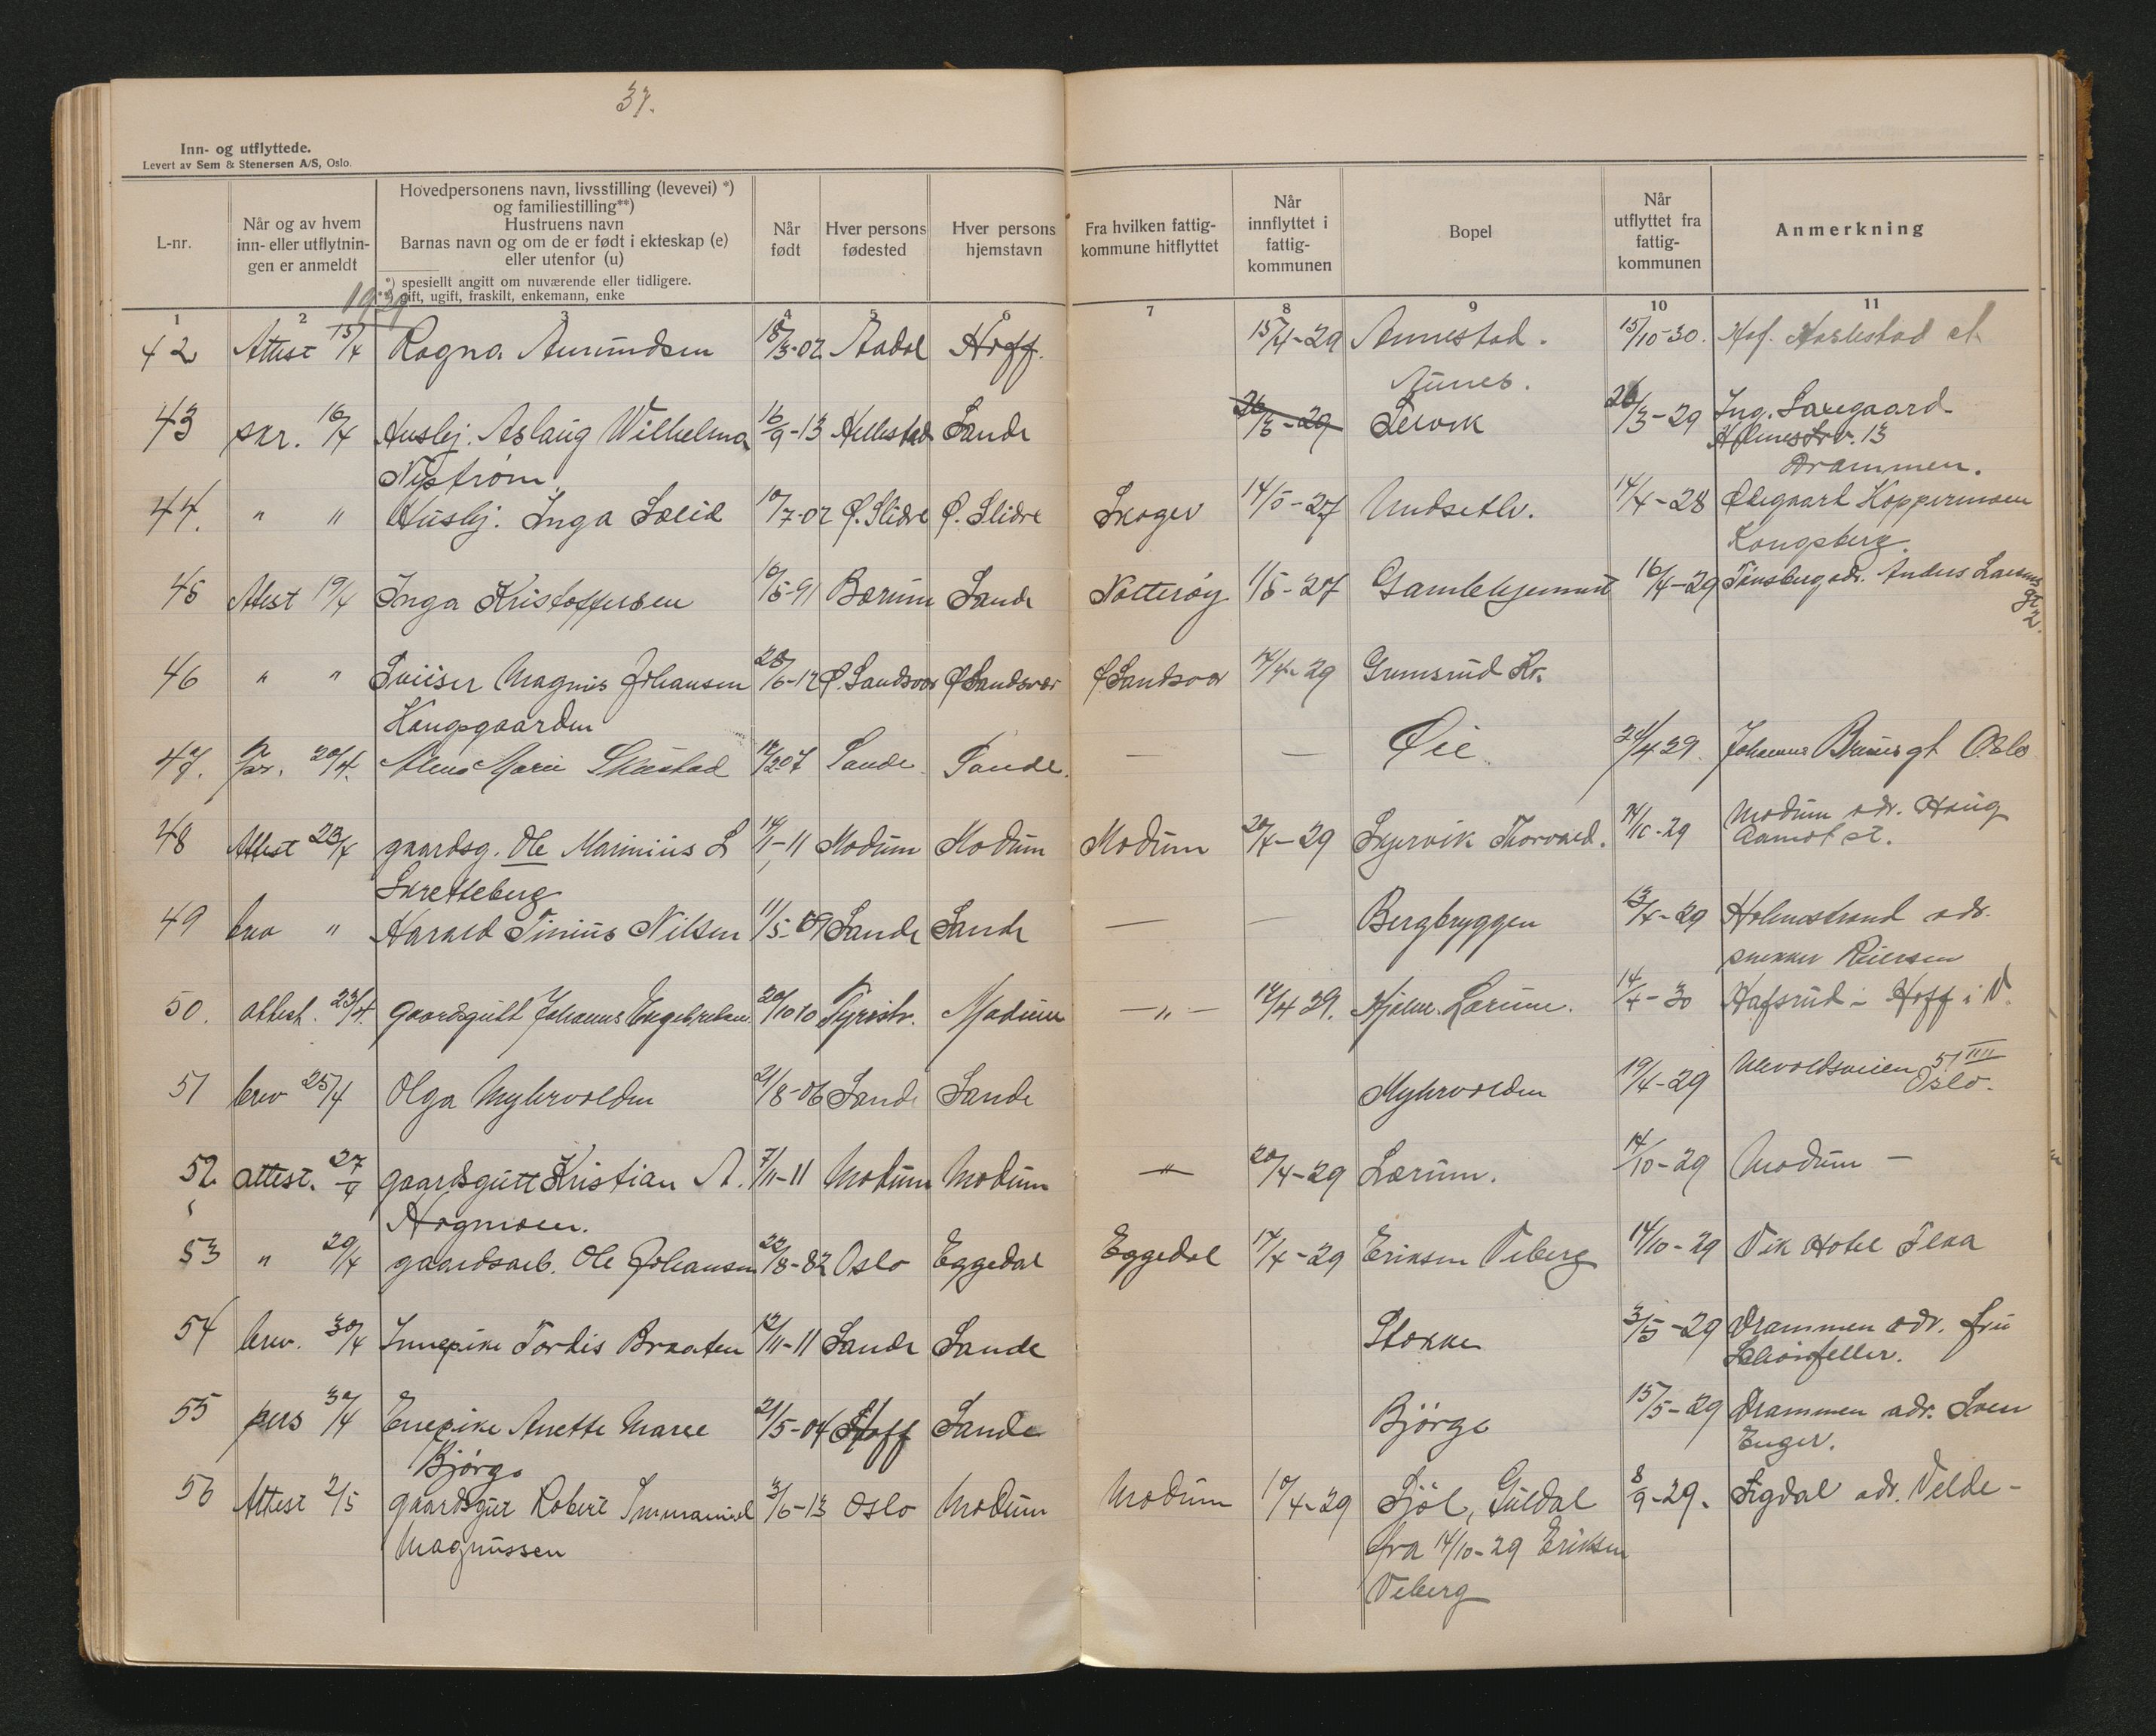 37.
Inn- og utflyttede.
Levert av Sem & Stenersen A/S, Oslo.
L-nr.
Når og av hvem
inn- eller utflytnin-
gen er anmeldt
Hovedpersonens navn, livsstilling (levevei) *)
og familiestilling**)
Hustruens navn
Barnas navn og om de er født i ekteskap (e)
eller utenfor (u)
*) spesiellt angitt om nuværende eller tidligere.
**) gift, ugift, fraskilt, enkemann, enke
Når
født
Hver persons
fødested
Hver persons
hjemstavn
Fra hvilken fattig-
kommune hitflyttet
Når
innflyttet i
fattig-
kommunen
Bopel
Når
utflyttet fra
fattig-
kommunen
Anmerkning
1 2 3 4 5 6 7 8 9 10 11
1929
42 Attest 15/4 Ragna Amundsen 18/3-02 Aadal Hoff. 15/4-29 Annestad. 15/10-30. Hof.
43 skr. 16/4 Huslj. Aslaug Wilhelma 16/9-13 Hillestad Sande 26/3-29 Lervik 26/3-29 Ing. Saxegaard
Nystrøm Holmestrv. 13
Drammen.
44. " " Huslj. Inga Lølid 10/7-02 Ø. Slidre Ø. Slidre Skoger 14/5-27 Undsetlv. 14/4-28 Ødegaard Koppermoen
Kongsberg.
45 Attest 19/4 Inga Kristoffersen 10/5-91 Bærum Sande Nøtterøy 1/5-27 Gamlehjemmet 16/4-29 Tønsberg adr. Anders Larsens
gt 2.
46 " " Sveiser Magnus Johansen 28/6-12 Ø. Sandsvær Ø Sandsvær Ø Sandsvær 14/4-29 Gunsrud Kr.
Kongsgaarden
47. 20/4. Marie Skæstad 12/2 07 Sande Sande. — — Øie 24/4 29. Johannes Bruns gt Oslo
48 Attest 23/4 gaardsg. Ole Marinius S 14/1-11 Modum Modum Modum 20/4-29 Skjervik Thorvald. 14/10-29 Modum adr. Haug
Skretteberg Aamot st.
49 brev " Harald Tinius Nilsen 11/5-09 Sande Sande — — Bergbryggen 13/4-29 Holmestrand adr.
snekker Reiersen
50. attest. 23/4. gaardsgutt Johannes Engebretsen 20/10 10 Tyristr. Modum —"— 14/4 29. Hjalm. Lørum. 14/4-30 Hafsrud - Hoff i V.
51 brev 25/4 Olga Myhrvolden 21/8-06 Sande Sande Myhrvolden 19/4-29 Ullevoldsveien 51 IIII
Oslo.
52 attest. 27/4 gaardsgutt Kristian A. 7/11-11 Modum Modum —"— 20/4-29 Lørum. 14/10-29 Modum —
Hagmoen.
53 " 29/4 gaardsarb. Ole Johansen 22/8-82 Oslo Eggedal Eggedal 14/4-29 Eriksen Veberg 14/10-29 Vik Hotel
54 brev. 30/4 Innepike Tordis Braaten 12/11-11 Sande Sande Stokke 3/5-29 Drammen adr. fru
55 pers 30/4 Enepike Anette Maree 21/5-04 Hoff Sande Bjørge 15/5-29 Drammen adr. Sven
Bjørge Enger.
56 Attest 2/5 gaardsgut Robert Immanuel 3/6-13 Oslo Modum Modum 10/4-29 Sjøl, Guldal 8/9-29. Sigdal adr. Velde-
Magnussen fra 14/10-29 Eriksen
Veberg